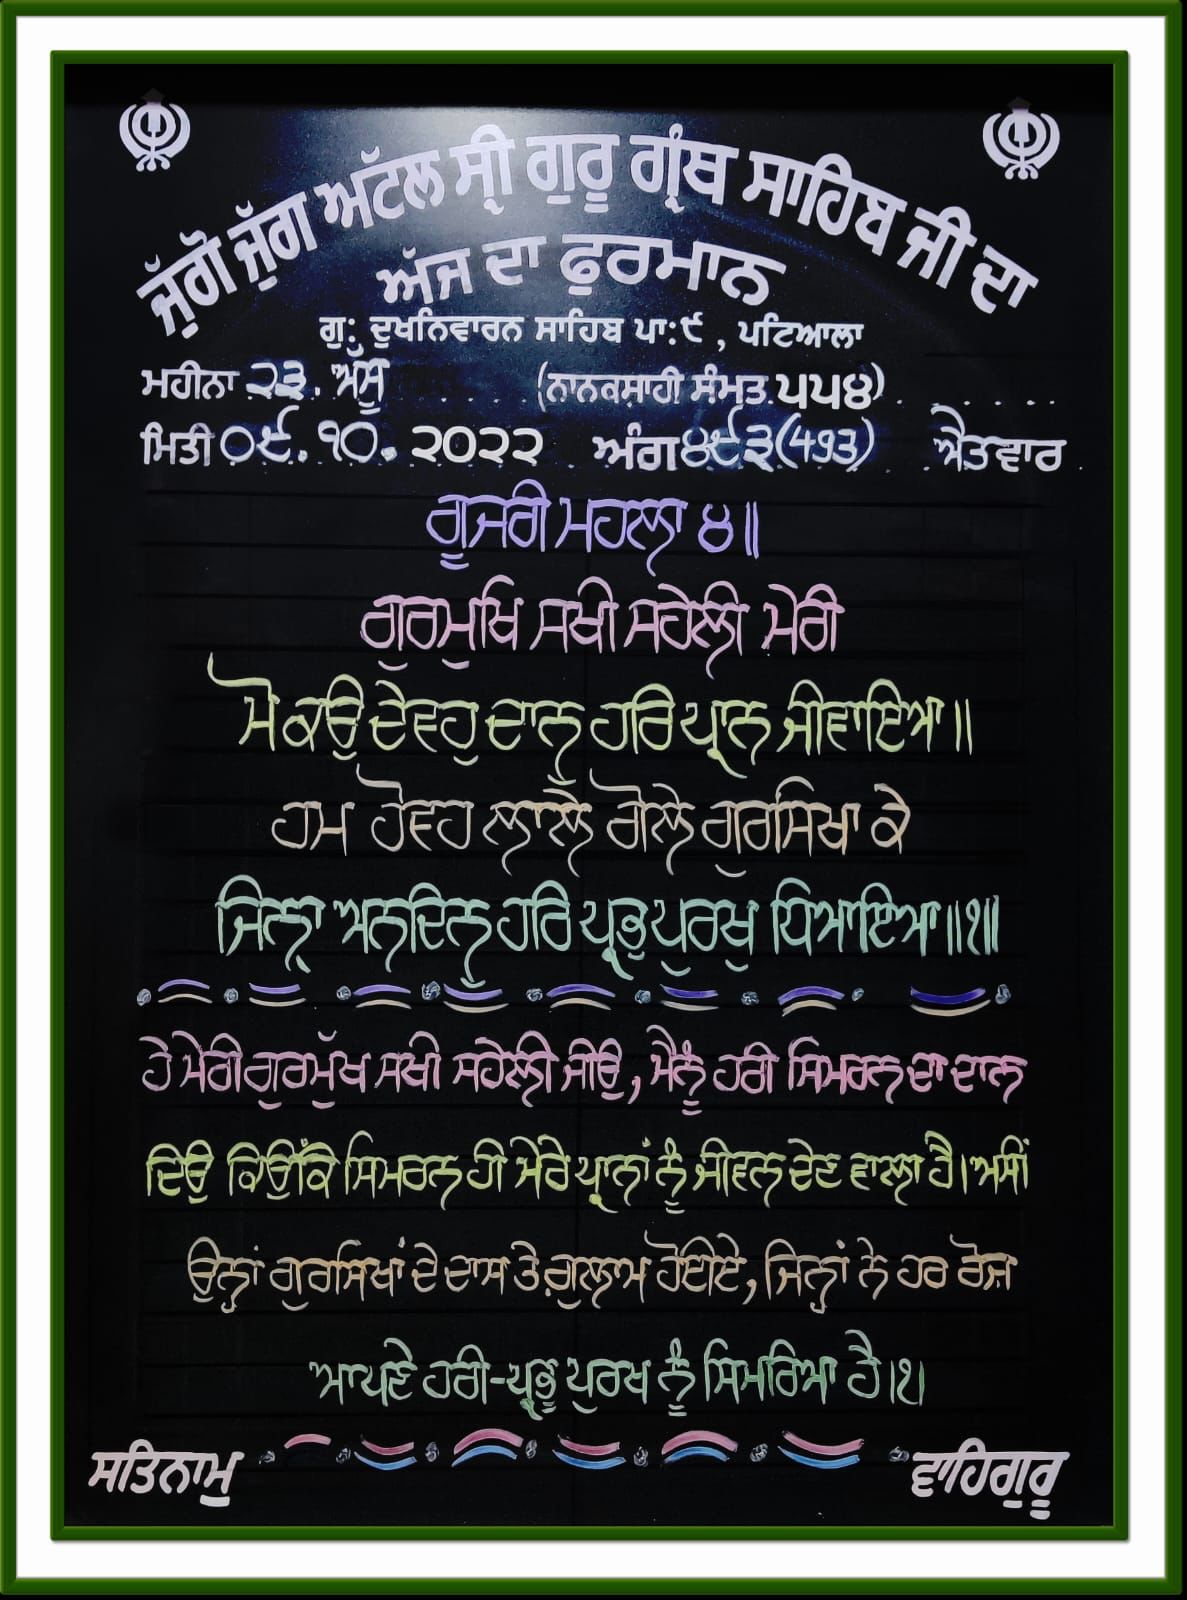 ਜੁੱਗੋ ਜੁੱਗ ਅਟੱਲ ਸ੍ਰੀ ਗੁਰੂ ਗ੍ਰੰਥ ਸਾਹਿਬ ਜੀ ਦਾ
ਅੱਜ ਦਾ ਫੁਰਮਾਨ
ਗੁ: ਦੁਖਨਿਵਾਰਨ ਸਾਹਿਬ ਪਾ:੯ , ਪਟਿਆਲਾ
ਮਹੀਨਾ ੨੩. ਅੱਸੂ (ਨਾਨਕਸ਼ਾਹੀ ਸੰਮਤ ੫੫੪)
ਮਿਤੀ ੦੯. ੧੦. ੨੦੨੨ ਅੰਗ ੪੯੩ (493) ਐਤਵਾਰ
ਗੂਜਰੀ ਮਹਲਾ ੪॥
ਗੁਰਮੁਖਿ ਸਖੀ ਸਹੇਲੀ ਮੇਰੀ
ਮੋ ਕਉ ਦੇਵਹੁ ਦਾਨੁ ਹਰਿ ਪ੍ਰਾਨ ਜੀਵਾਇਆ॥
ਹਮ ਹੋਵਹ ਲਾਲੇ ਗੋਲੇ ਗੁਰਸਿਖਾ ਕੇ
ਜਿਨ੍ਹਾ ਅਨਦਿਨੁ ਹਰਿ ਪ੍ਰਭੁ ਪੁਰਖੁ ਧਿਆਇਆ॥੧॥
ਹੇ ਮੇਰੀ ਗੁਰਮੁੱਖ ਸਖੀ ਸਹੇਲੀ ਜੀਉ, ਮੈਨੂੰ ਹਰੀ ਸਿਮਰਨ ਦਾ ਦਾਨ
ਦਿਉ ਕਿਉਂਕਿ ਸਿਮਰਨ ਹੀ ਮੇਰੇ ਪ੍ਰਾਨਾਂ ਨੂੰ ਜੀਵਨ ਦੇਣ ਵਾਲਾ ਹੈ। ਅਸੀਂ
ਉਨ੍ਹਾਂ ਗੁਰਸਿਖਾਂ ਦੇ ਦਾਸ ਤੇ ਗ਼ੁਲਾਮ ਹੋਈਏ, ਜਿਨ੍ਹਾਂ ਨੇ ਹਰ ਰੋਜ਼
ਆਪਣੇ ਹਰੀ-ਪ੍ਰਭੂ ਪੁਰਖ ਨੂੰ ਸਿਮਰਿਆ ਹੈ।੧।
ਸਤਿਨਾਮੁ ਵਾਹਿਗੁਰੂ